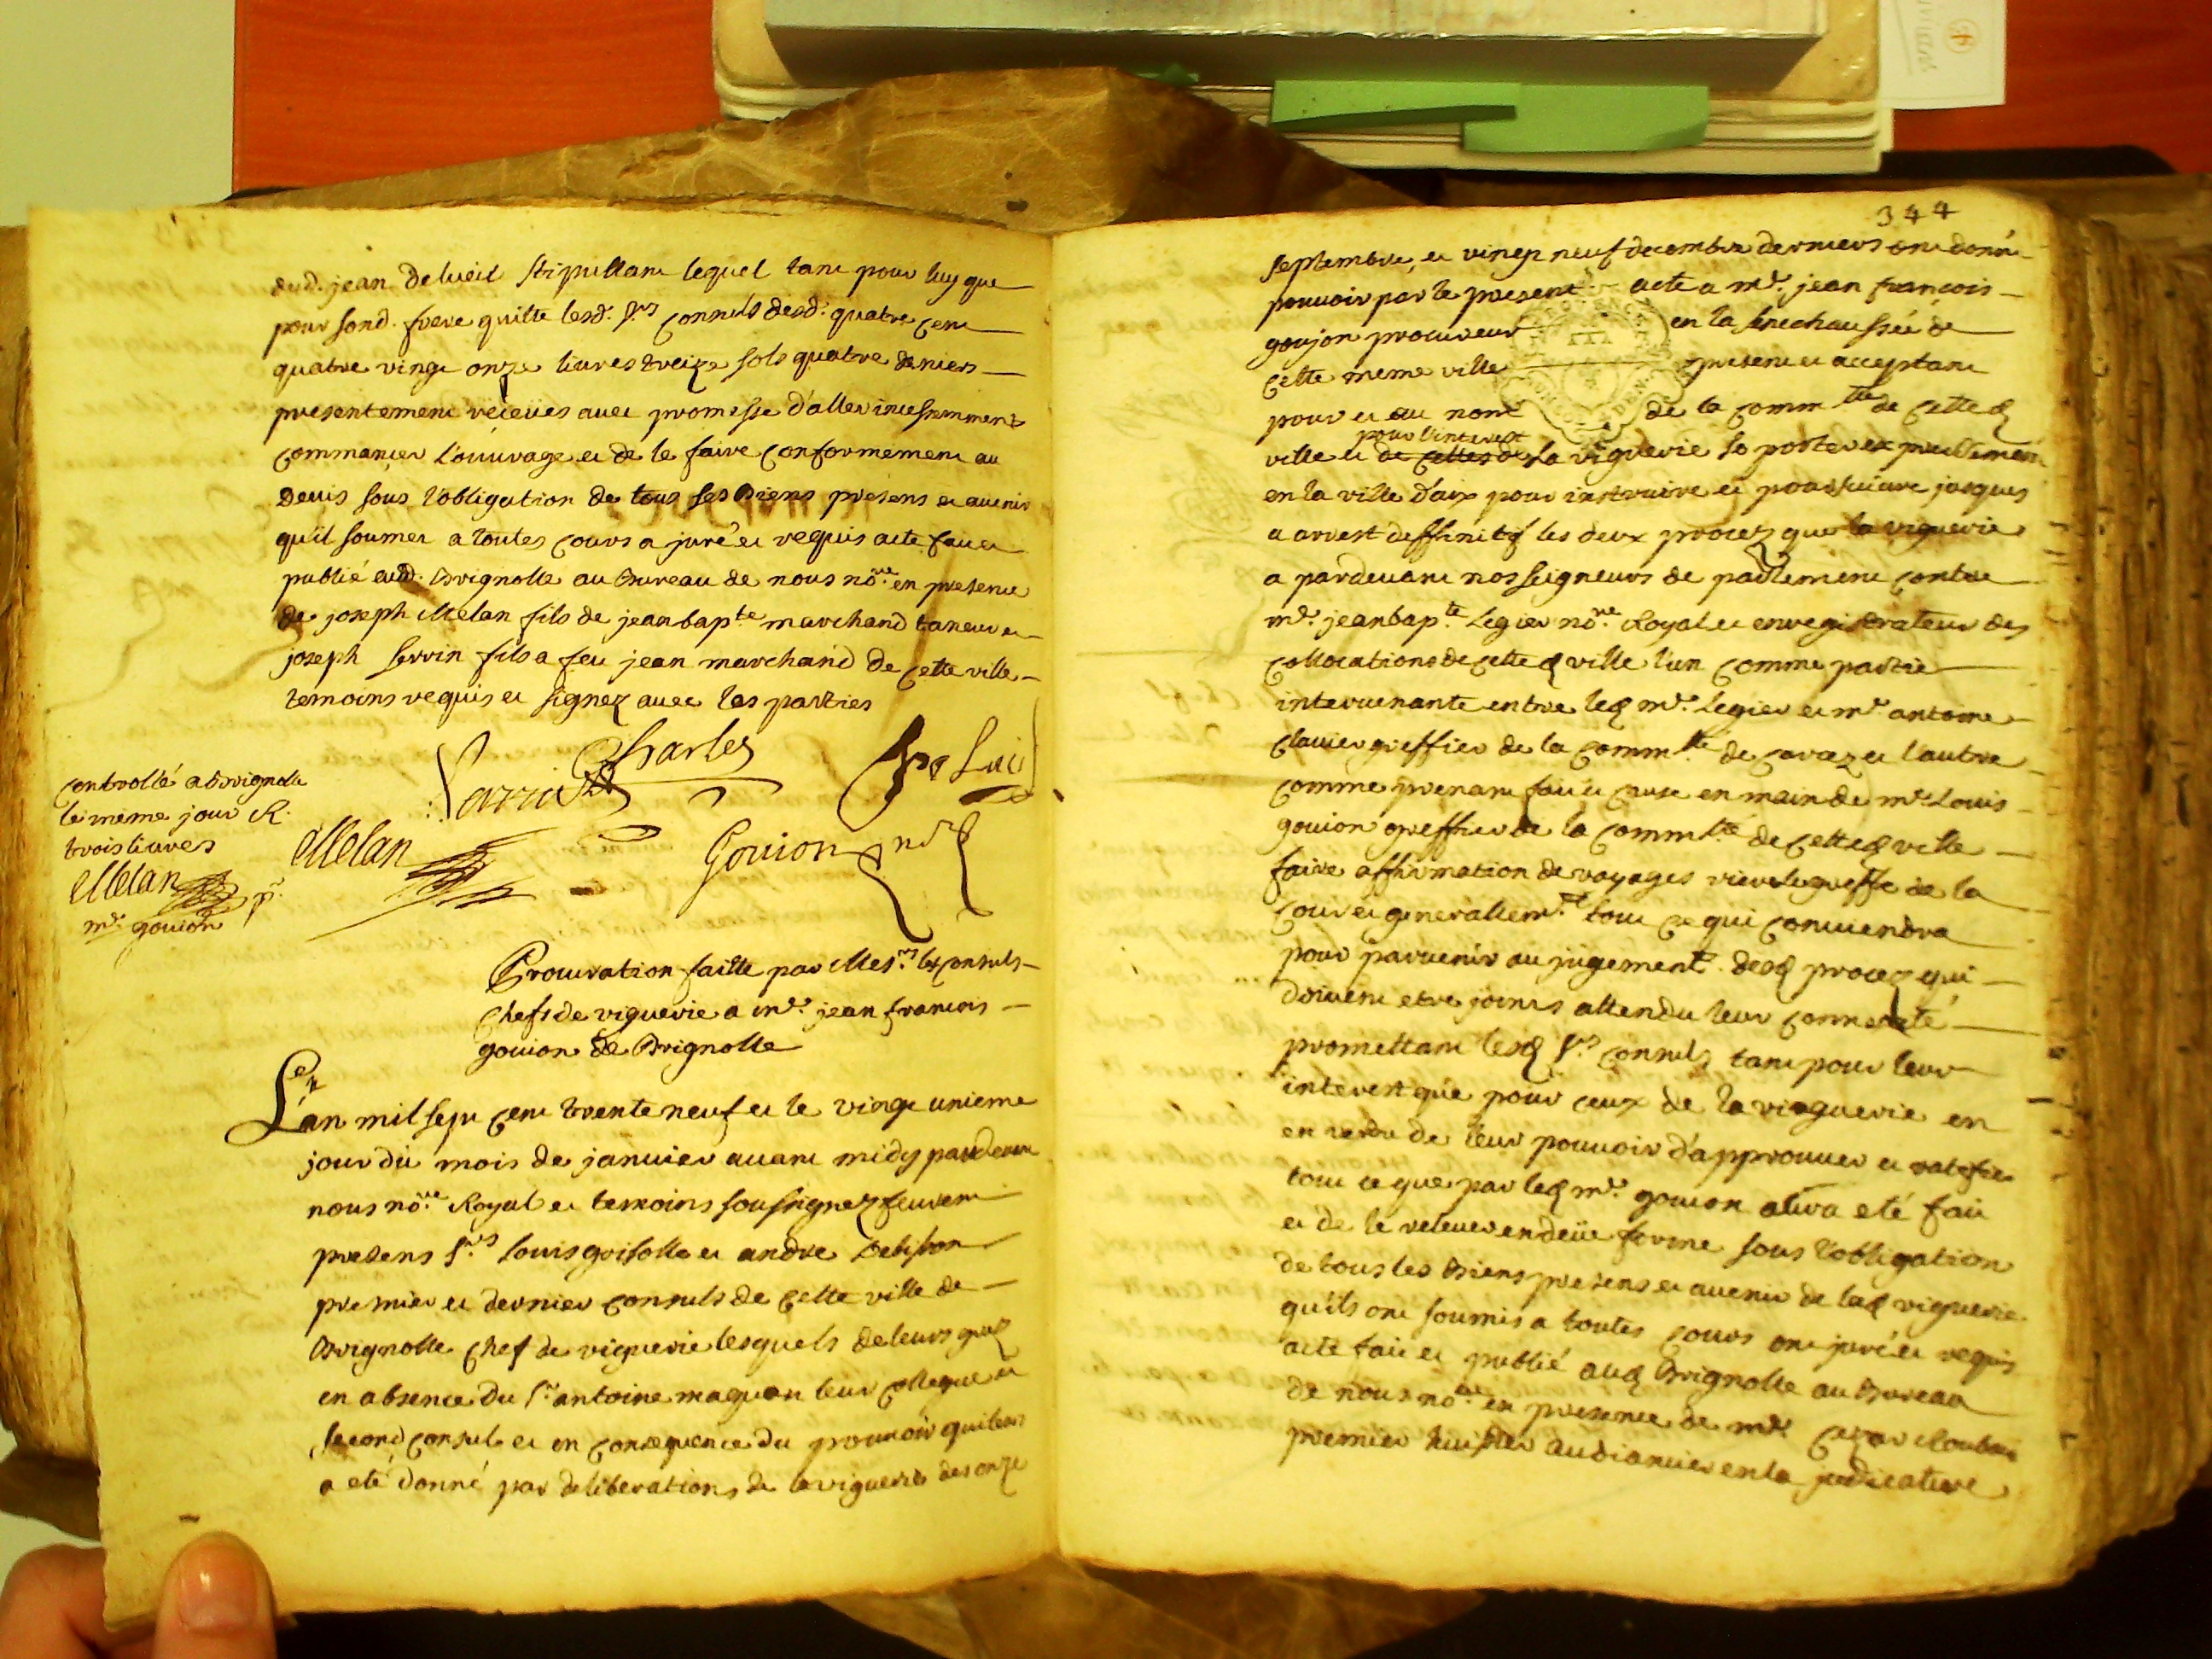 dud. jean delueil stipullant lequel tant pour luy que
pour sond. frere quitte lesd. srs consuls desd. quatre cent
quatre vingt onze livres treize sols quatre deniers
presentement receües avec promesse d'aller incessemment
commancer l'ouvrage et de le faire conformement au
devis sous l'obligation de tous ses biens presens et avenir
qu'il soumet a toutes cours a juré et requis acte fait et
publié aud. Brignolle au Bureau de nous nore. en presence
de joseph Melan fils de jean bapte marchand taneur et
joseph serrin fils a feu jean marchand de cette ville
temoins requis et signez avec les parties
Charles
controllé a Brignolle
le meme jour R.
trois livres
Melan
Melan
Goujon nre
mre goujon
Procuration faitte par Mesrs. les consuls
chefs de viguerie a me. jean francois
goujon de Brignolle
L'an mil sept cent trente neuf et le vingt unieme
jour du mois de janvier avant midy pardevant
nous nore. Royal et temoins soussignez feurent
presens srs. louis grisolle et andre
premier et dernier consuls de cette ville de
Brignolle chef de viguerie lesquels de leurs grez
en absence du sr. antoine leur collegue et
second consul et en consequence du pouvoir qui leur
a eté donné par deliberations de la viguerie des onze
344
septembre, et vingt neuf decembre derniers ont donné
pouvoir par le present acte a me. jean francois
goujon procureur en la senechaussée de
cette meme ville present et acceptant
pour et au nom de la commté de cetted
pour l'interest
ville et de celles de la viguerie se porter expressement
en la ville d'aix pour instruire et poursuivre jusques
a arrest deffinitif les deux procez que la viguerie
a pardevant nos seigneurs de parlement contre
me. jean bapte. Legier nore. Royal et enregistrateur des
collocations de cetted ville l'un comme partie
intervenante entre led me. Legier et me. antoine
clavier greffier de la commté de et l'autre
comme prenant fait et cause en main de me. Louis
goujon greffier de la commté de cetted ville
faire affirmation de voyages riere le greffe de la
cour et generallemt. tout ce qui conviendra
pour parvenir au jugement. desd procez qui
doivent etre joints attendu leur connexité
promettant lesd srs. consuls tant pour leur
interest que pour ceux de la viaguerie en
en vertu de leur pouvoir d'approuver et ratifier
tout ce que par led me. goujon aura eté fait
et de le relever en deüe forme sous l'obligation
de tous les biens presens et avenir de lad viguerie
qu'ils ont soumis a toutes cours ont juré et requis
acte fait et publié aud Brignolle au Bureau
de nous nore. en presence de me.
premier huissier audiancier en la judicature